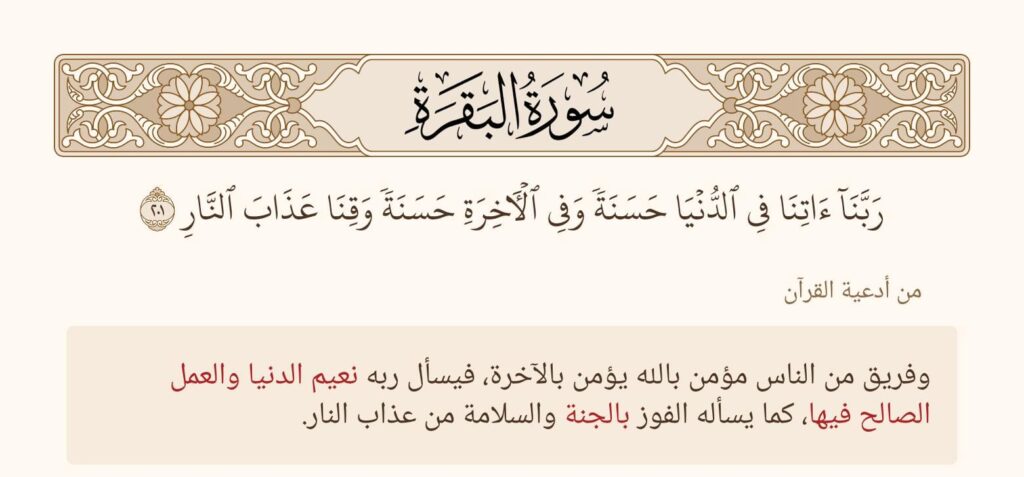 سُورَةُ البَقَرَةِ
رَبَّنَآ ءَاتِنَا فِي ٱلدُّنْيَا حَسَنَةً وَفِي ٱلْأَخِرَةِ حَسَنَةً وَقِنَا عَذَابَ ٱلنَّارِ ٢٠١
من أدعية القرآن
وفريق من الناس مؤمن بالله يؤمن بالآخرة، فيسأل ربه نعيم الدنيا والعمل
الصالح فيها، كما يسأله الفوز بالجنة والسلامة من عذاب النار.